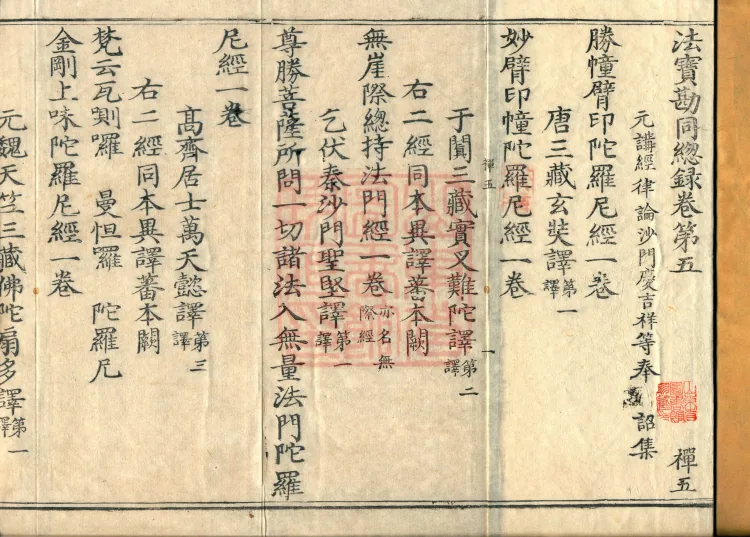 法寶勘同總録卷第五
元講經律論沙門慶吉祥等奉 詔集 禪五
勝幢臂印陀羅尼經一卷
唐三藏玄奘譯第一譯
妙臂印幢陀羅尼經一卷
禪五 一
于闐三藏實叉難陀譯第二譯
右二經同本異譯蕃本闕
無崖際總持法門經一卷亦名無際經
乞伏秦沙門聖堅譯第一譯
尊勝菩薩所問一切諸法入無量法門陀羅
尼經一卷
高齊居士萬天懿譯第三譯
右二經同本異譯蕃本闕
梵云瓦則囉 曼怛羅 陀羅尼
金剛上味陀羅尼經一卷
元魏天竺三藏佛陀扇多譯第一譯